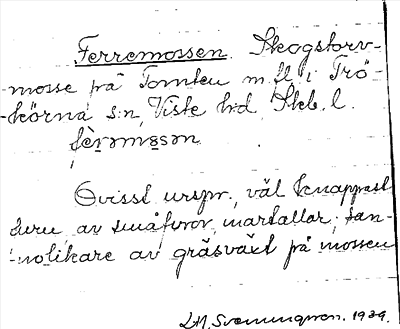 Ferremossen. Skogstorv-
-mosse på Tomten m.fl. i Trö-
-körna s:n, Viste h:d, Skb. l.
fèrəmɔsən
Ovisst urspr., väl knappast
av småfuror, martallar, san-
-nolikare av gräsväxt på mossen
Svenungsson. 1939.